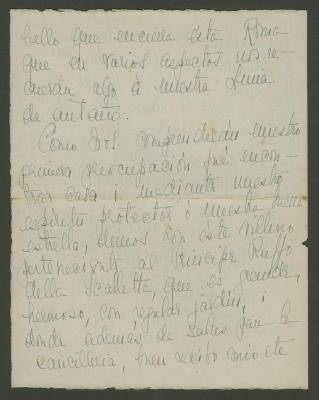 bello que encierra esta Roma
que en varios aspectos nos re-
cuerda algo à nuestra Lima
de antaño.
Como Uds. comprenderán nuestra
primera preocupación fué encon-
trar casa i mediante nuestro
espíritu protector ó nuestra buena
estrella, dimos con este villino
perteneciente al Príncipe Ruffo
della Scaletta, que es grande,
hermoso, con regular jardín, i
donde además de salas para la
cancillería, buen recibo